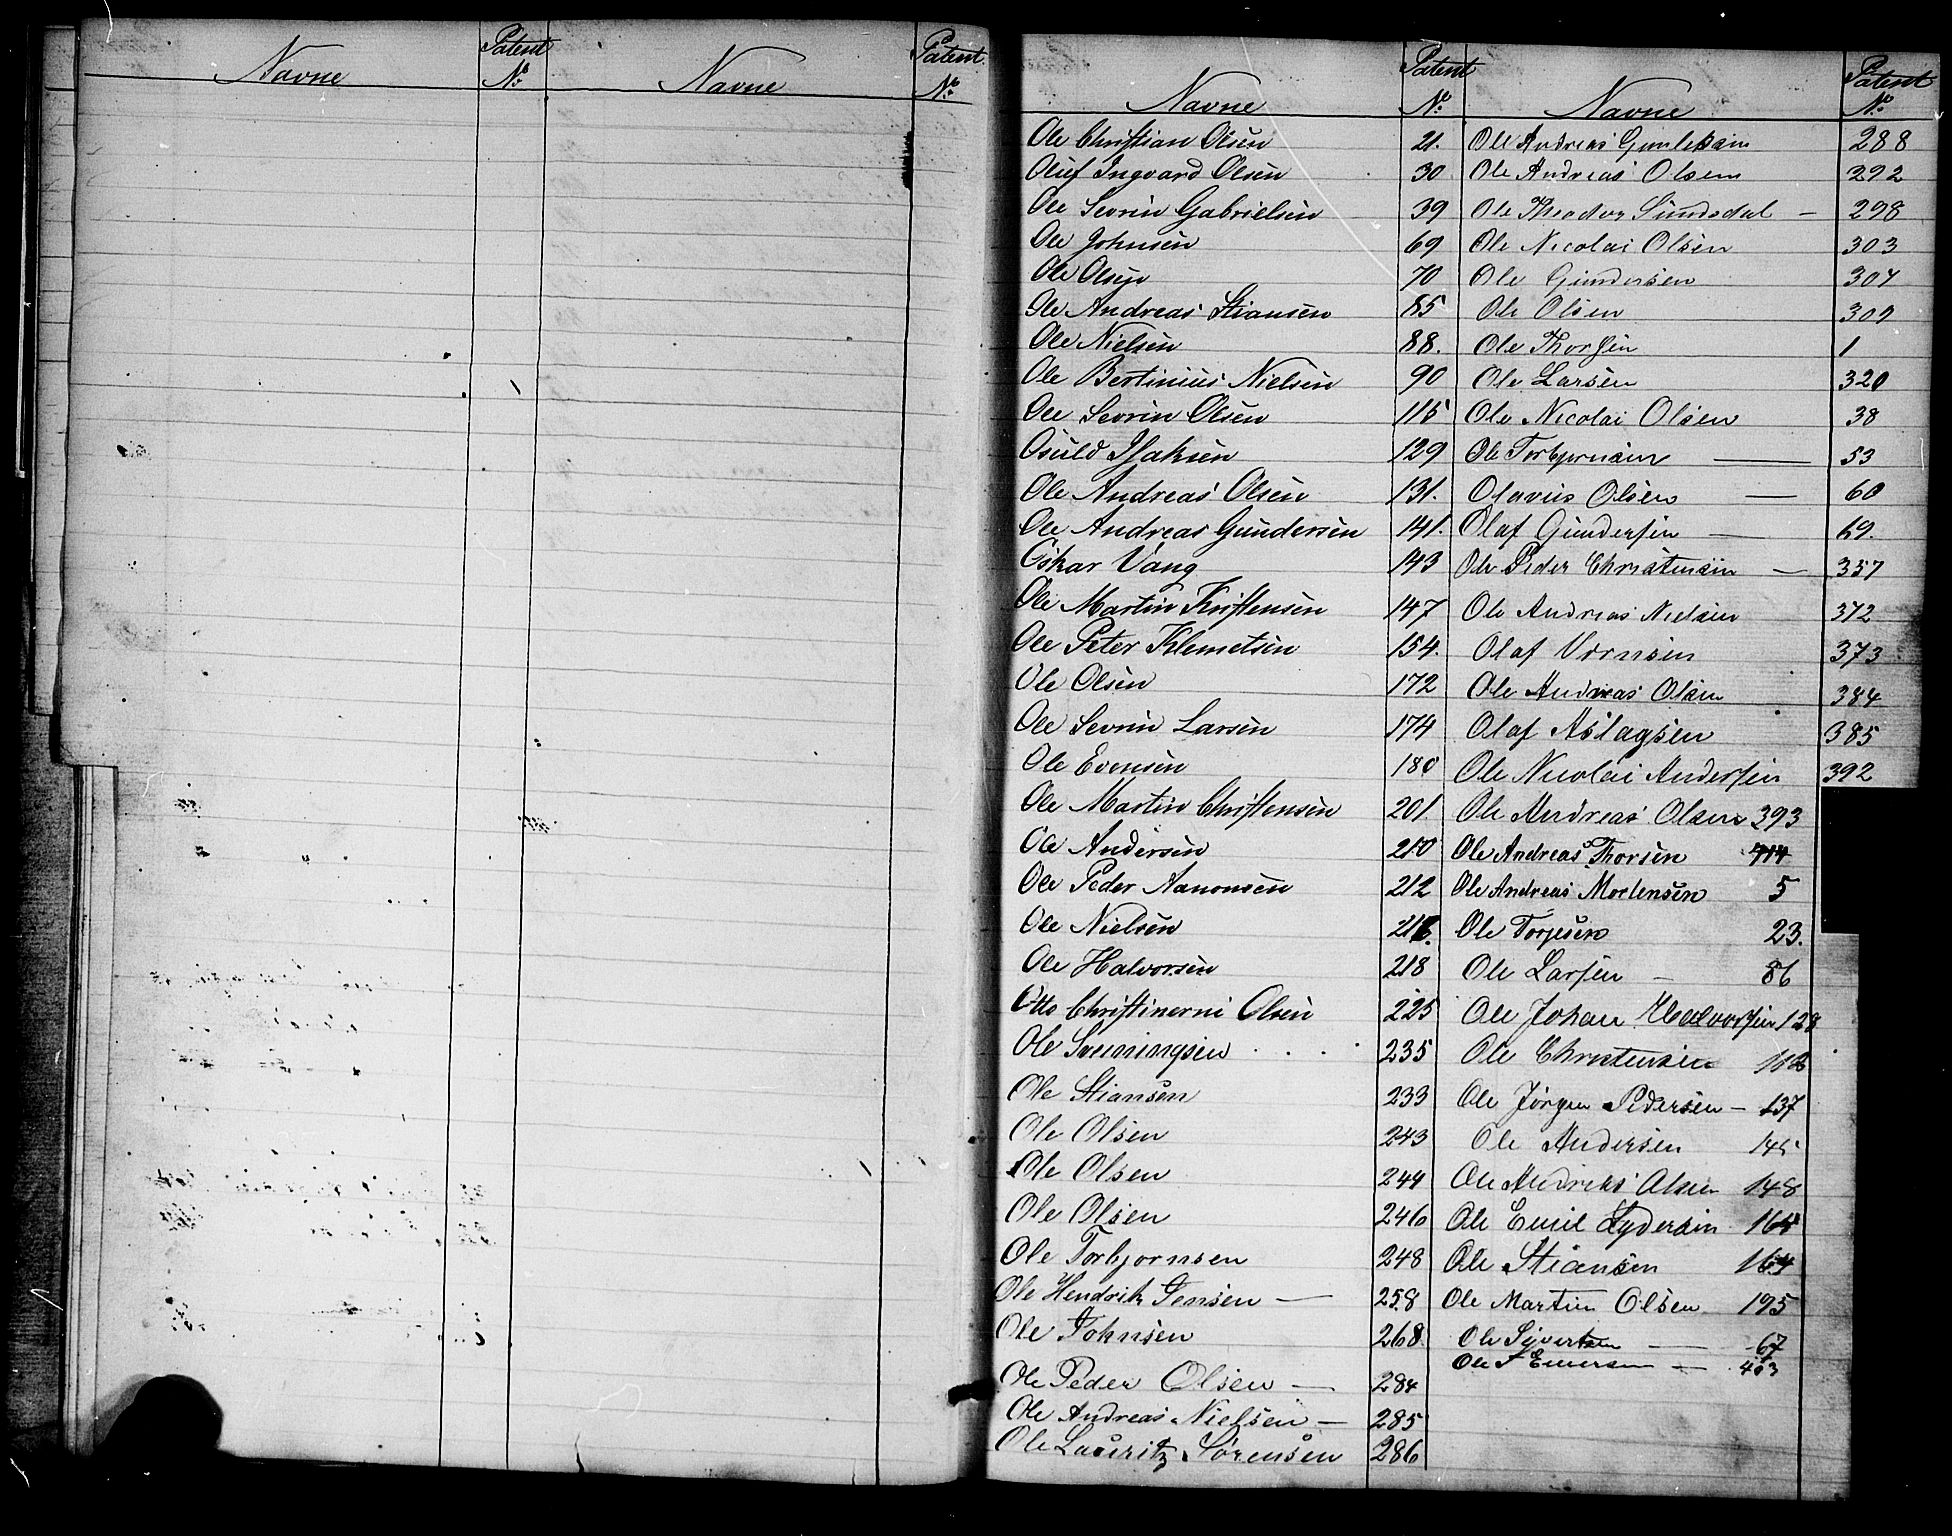 Navne Patent No. Navne Patent No.
Navne Patent No. Navne Patent No.
Ole Christian Olsen 21.
Oluf Ingvard Olsen 30
Ole Sevrin Gabrielsen 39
Ole Johnsen 69
Ole Olsen 70
Ole Andreas Stiansen 85
Ole Nielsen 88.
Ole Bertinius Nielsen 90
Ole Sevrin Olsen 115
Osuld Isaksen 129
Ole Andreas Olsen 131.
Ole Andreas Gundersen 141.
Oskar Vang 143
Ole Martin Kristensen 147
Ole Peter Klemetsen 154.
Ole Olsen 172
Ole Sevrin Larsen 174
Ole Evensen 180
Ole Martin Christensen 201.
Ole Andersen 210
Ole Peder Aanonsen 212
Ole Nielsen
Ole Halvorsen 218
Otto Olsen 225
Ole Svenningsen . . . . 235
Ole Stiansen 233
Ole Olsen 243
Ole Olsen 244
Ole Olsen 246
Ole Torbjornsen 248
Ole Hendrik Jensen — 258
Ole Johnsen 268
Ole Peder Olsen — 284
Ole Andreas Nielsen — 285
Ole Lauritz Sørensen 286
Ole Andreas 288
Ole Andreas Olsen 292
Ole Theodor Sundsdal — 298
Ole Nicolai Olsen 303
Ole Gundersen 307
Ole Olsen 309
Ole Thorsen 1
Ole Larsen 320
Ole Nicolai Olsen 38
Ole Torbjornsen — 53
Olavus Olsen — 60
Olaf Gundersen — 69.
Ole Peder Christensen — 357
Ole Andreas Nielsen 372
Olaf 373
Ole Andreas Olsen 384
Olaf Aslagsen 385
Ole Nicolai Andersen 392
Ole Andreas Olsen 393
Ole Andreas Thorsen 414
Ole Andreas Mortensen 5
Ole Torjesen 23.
Ole Larsen — 86
Ole Johan Halvorsen 128
Ole Christensen
Ole Jørgen Pedersen — 137
Ole Andersen 145
Ole Andreas Olsen 148
Ole Emil Lydersen
Ole Stiansen 164
Ole Martin Olsen 195
Ole Sivertsen — 67
Ole —